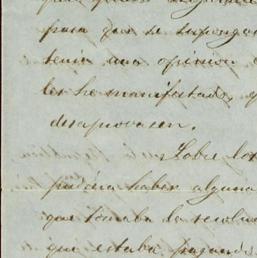 para que se suponga
tenia una opinion
les he manifestado, q
desaprovasen.
Sobre los
pudiera haber alguna
que tomaba la resolu
que estaba